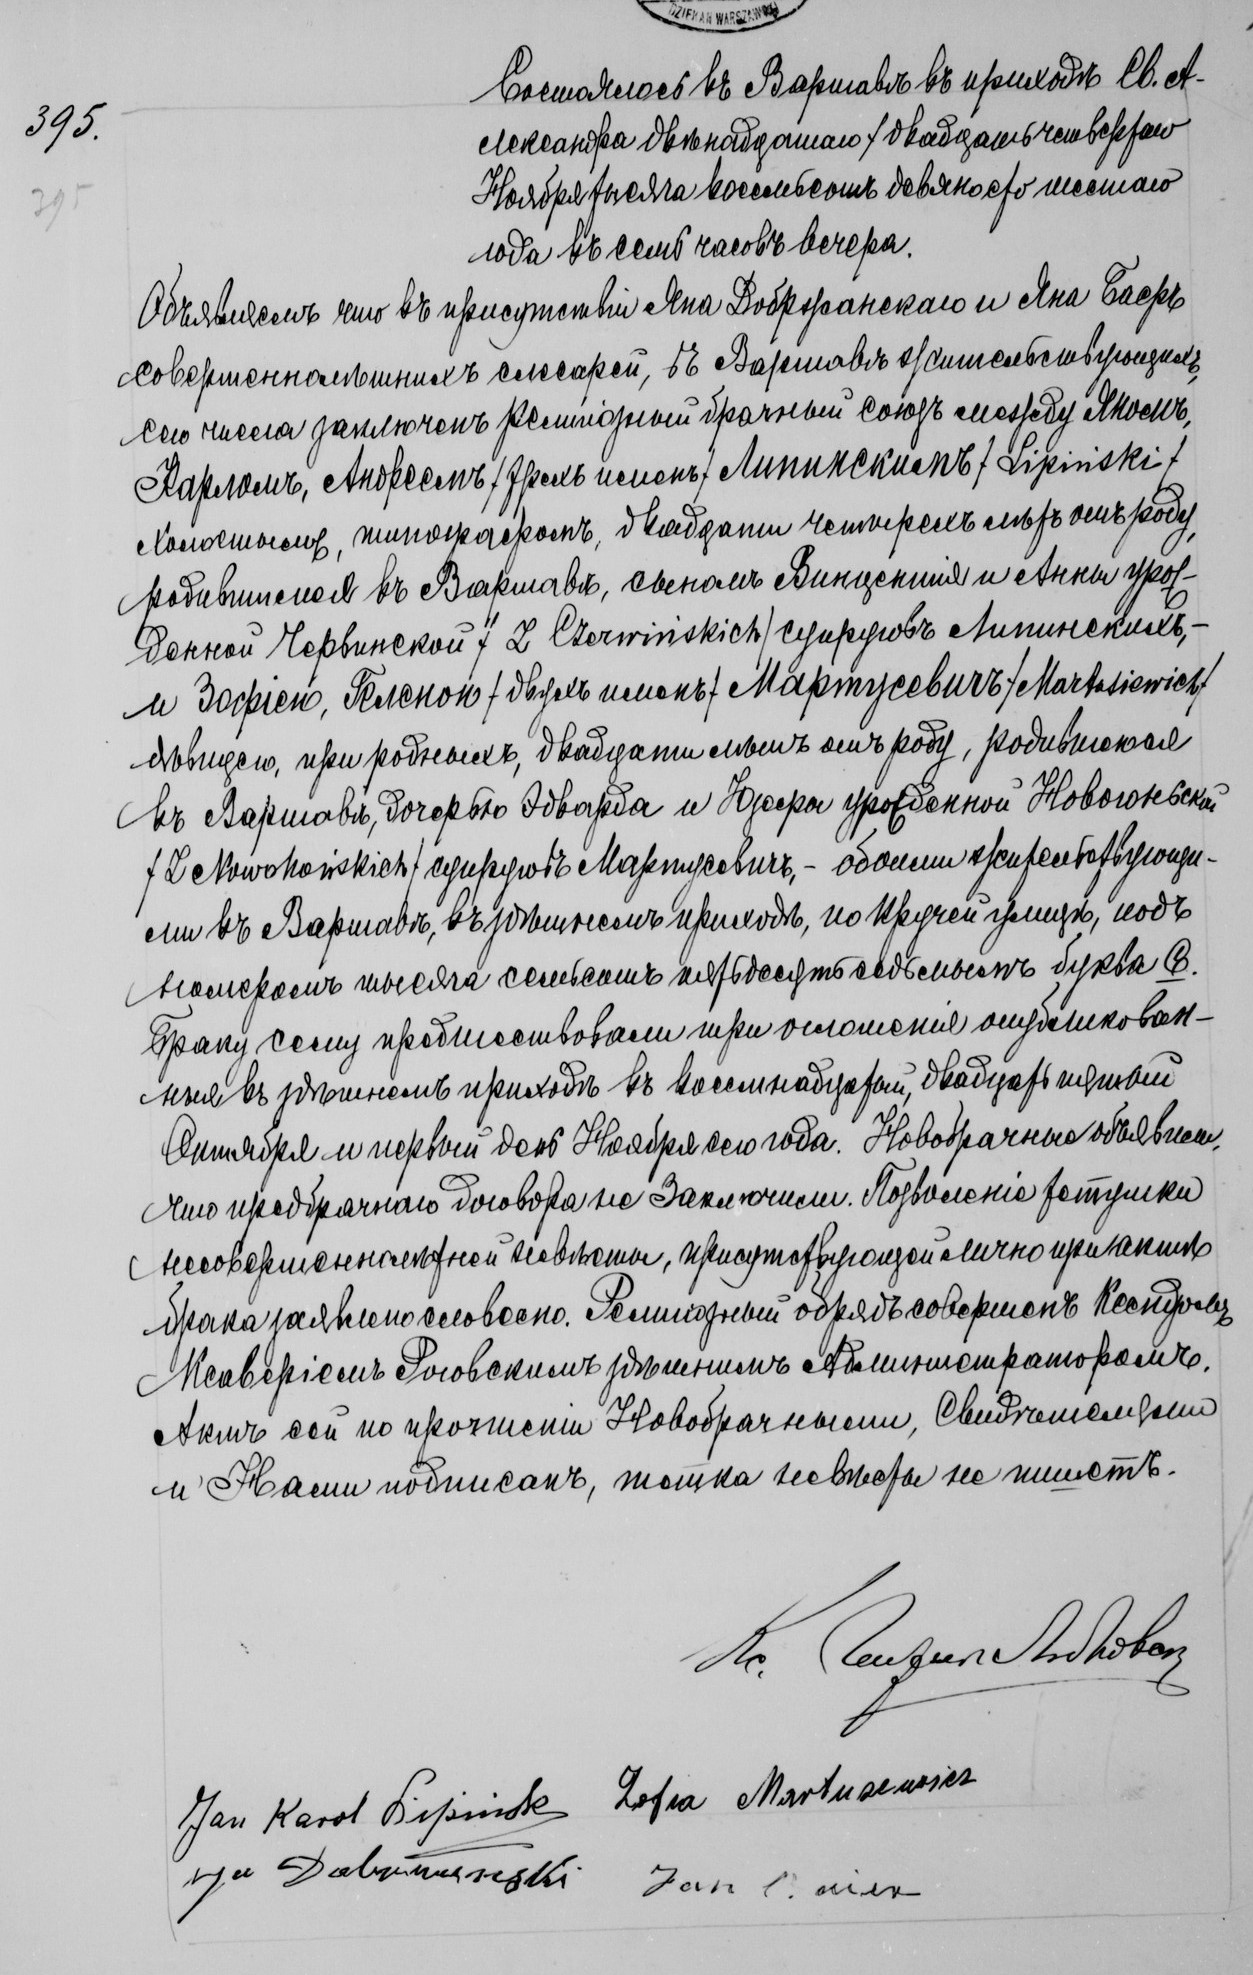 DZIEKAN WARSZAWSKI
395.
395
Состоялось въ Варшавѣ въ приходѣ Св. А-
лександра двѣнадцатаго / двадцать четвертаго
Ноября тысяча восемьсотъ девяносто шестаго
года въ семь часовъ вечера.
Объявляемъ что въ присутствіи Яна Добржанскаго и Яна Баеръ
совершеннолѣтнихъ слесарей, въ Варшавѣ жительствующихъ,
сего числа заключенъ религіозный брачный союзъ между Яномъ,
Карломъ, Андреемъ / трехъ именъ / Липинскимъ / Lipiński /
холостымъ, типографомъ, двадцати четырехъ лѣтъ отъ роду,
родившимся въ Варшавѣ, сыномъ Винцентія и Анны урож-
денной Червинской / Z Czerwińskich / супруговъ Липинскихъ, -
и Зофіею, Геленою / двухъ именъ / Мартусевичъ / Martusiewicz /
дѣвицею, при родныхъ, двадцати лѣтъ отъ роду, родившеюся
въ Варшавѣ, дочерью Эдварда и Юзефы урожденной Новогоньской
/ Z Nowohońskich / супруговъ Мартусевичъ, - обоими жительствующи-
ми въ Варшавѣ, въ здѣшнемъ приходѣ, по Кручей улицѣ, подъ
номеромъ тысяча семьсотъ пятьдесятъ седьмымъ буква В.
Браку сему предшествовали три оглашенія опубликован-
ныя въ здѣшнемъ приходѣ въ восемнадцатый, двадцать пятый
Октября и первый день Ноября сего года. Новобрачные объявили,
что предбрачнаго договора не заключили. Позволеніе тетушки
несовершеннолѣтней невѣсты, присутствующей лично при актѣ
брака заявлено словесно. Религіозный обрядъ совершенъ Ксендзомъ
Ксаверіемъ Роговскимъ здѣшнимъ Администраторомъ.
Актъ сей по прочтеніи Новобрачными, Свидѣтелями
и Нами подписанъ, тетка невѣсты не пишетъ.
Кс.
Jan Karol Lipiński Zofia Martusewicz
Jan